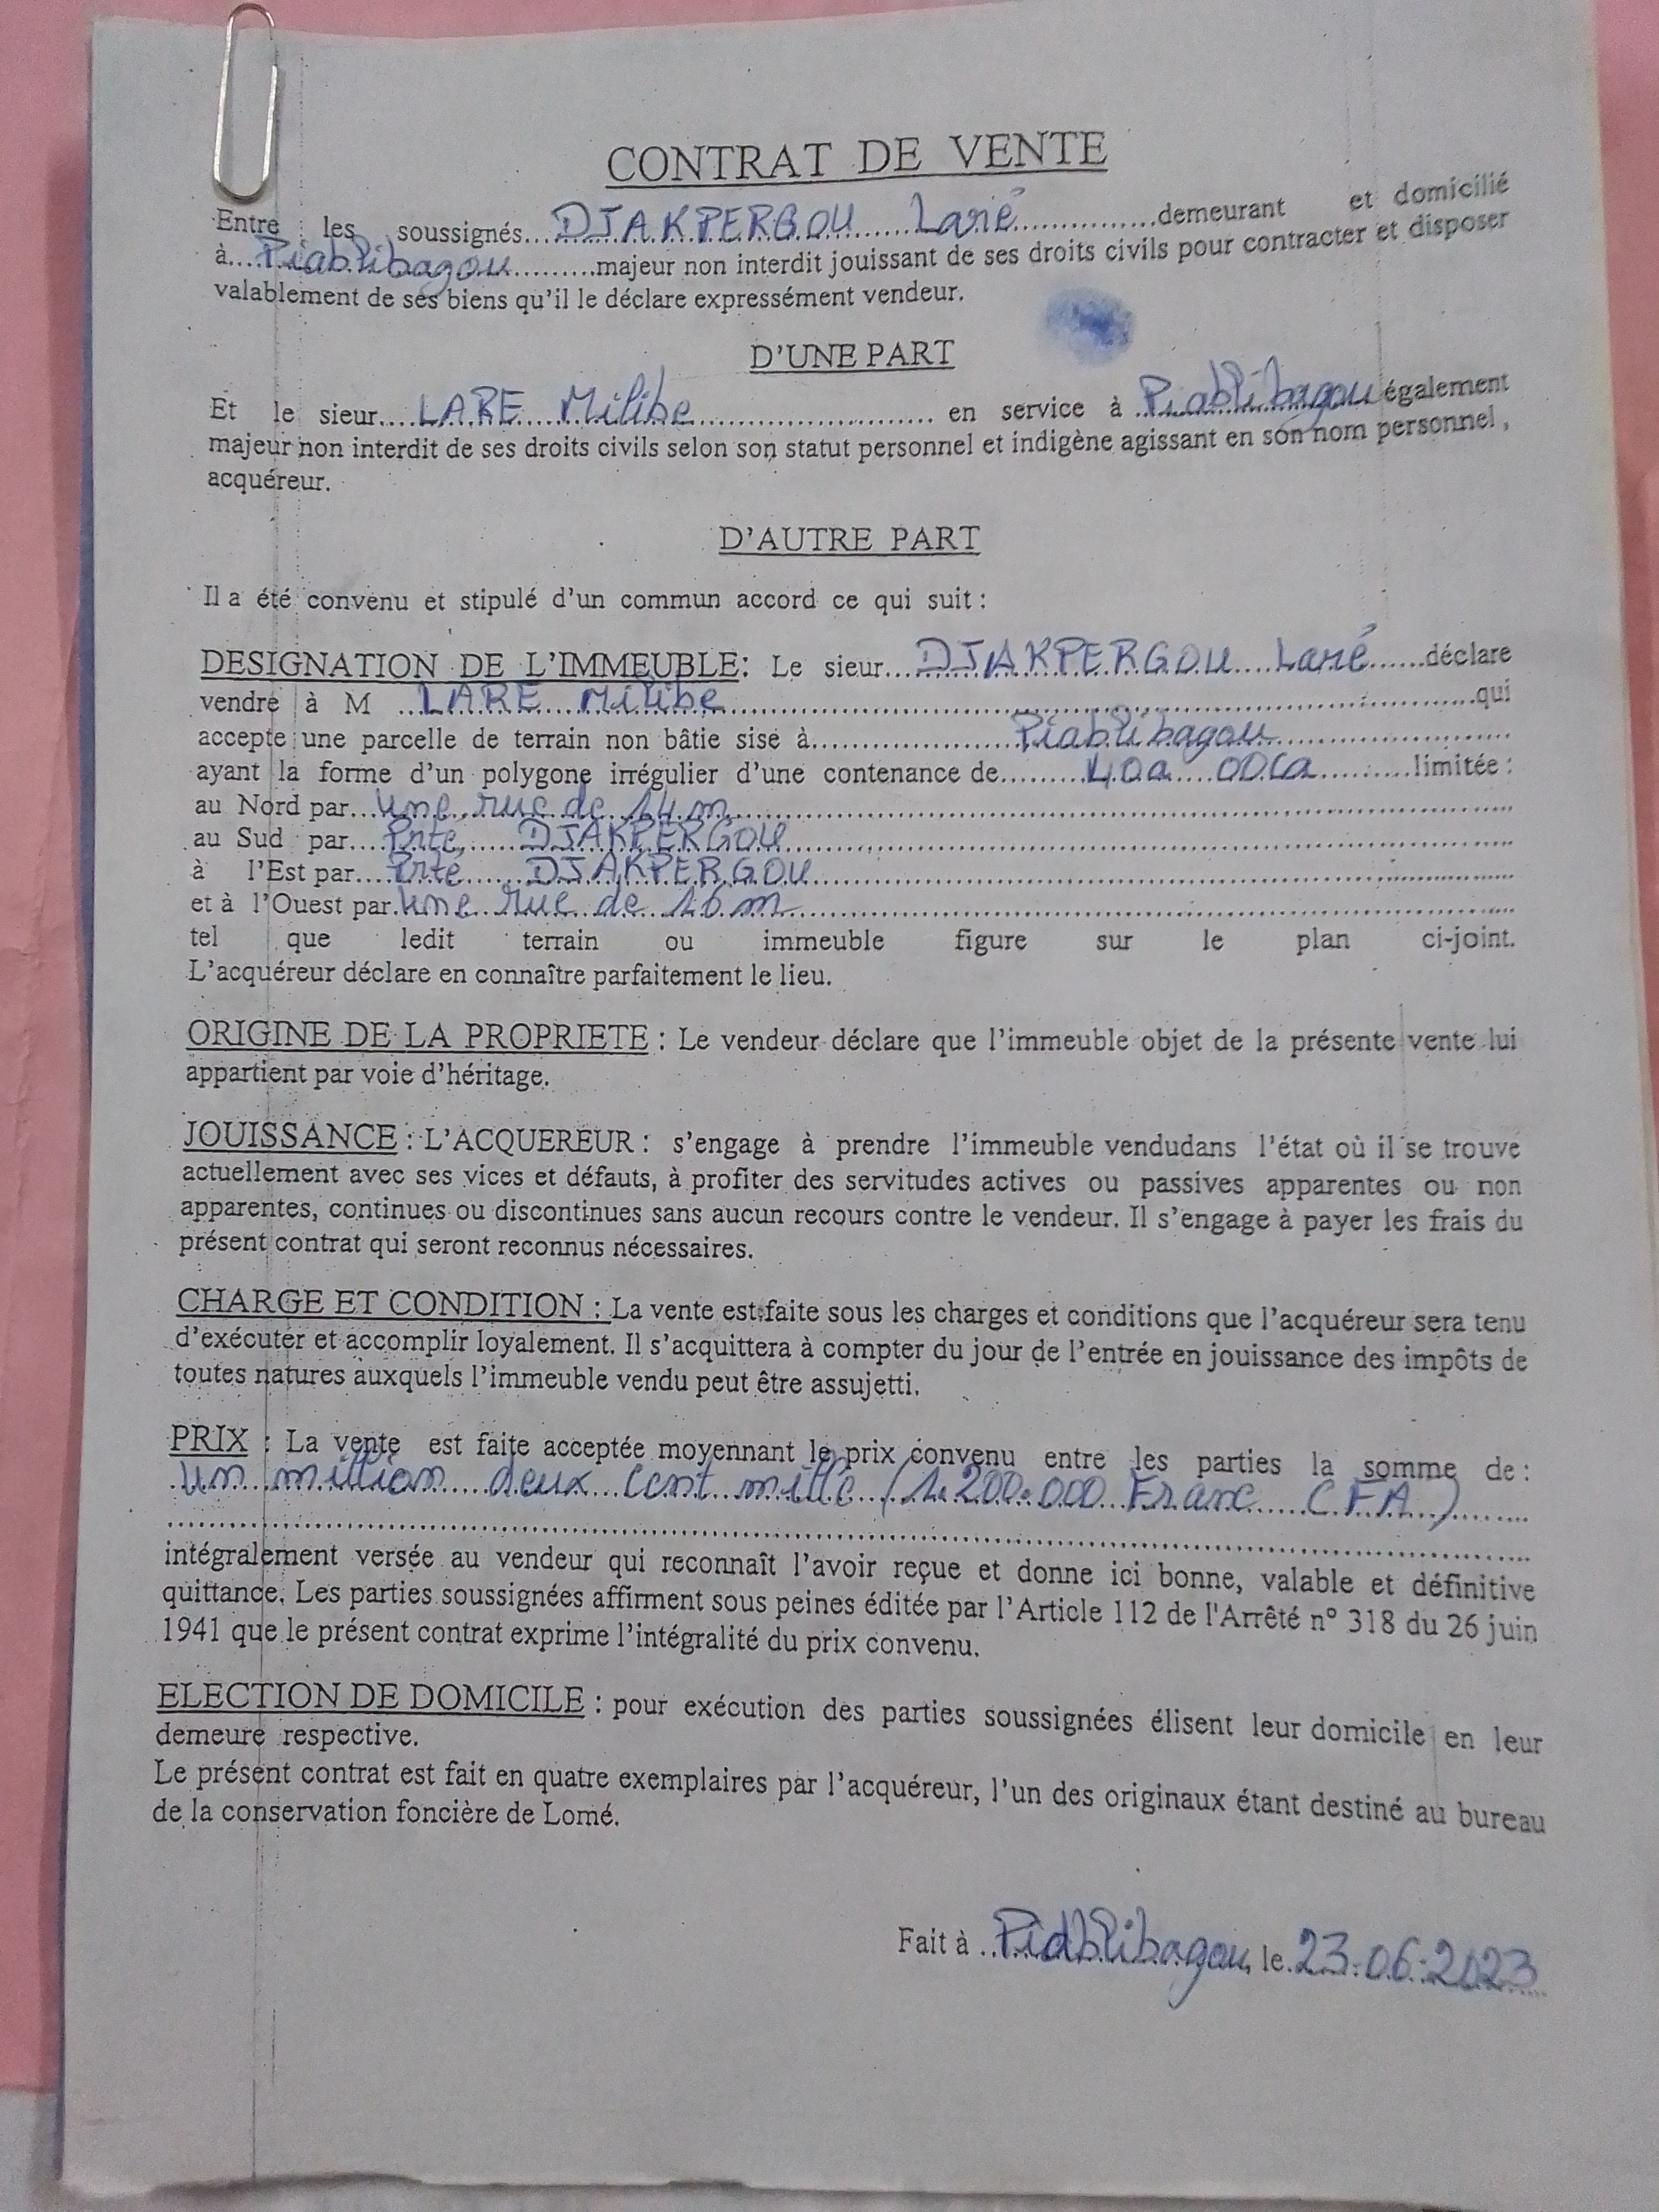 CONTRAT DE VENTE
Entre les soussignés...DJAKPERGOU Laré...demeurant et domicilié
à...Piablibagou...majeur non interdit jouissant de ses droits civils pour contracter et disposer
valablement de ses biens qu'il le déclare expressément vendeur.
D'UNE PART
Et le sieur...LARE Milibe... en service à ...Piablibagou également
majeur non interdit de ses droits civils selon son statut personnel et indigène agissant en son nom personnel,
acquéreur.
D'AUTRE PART
Il a été convenu et stipulé d'un commun accord ce qui suit :
DESIGNATION DE L'IMMEUBLE: Le sieur...DJAKPERGOU Laré...déclare
vendre à M ...LARE Milibe...qui
accepte une parcelle de terrain non bâtie sise à...Piablibagou...
ayant la forme d'un polygone irrégulier d'une contenance de...40a 00ca...limitée :
au Nord par...Une rue de 14 m...
au Sud par...Prté DJAKPERGOU...
à l'Est par...Prté DJAKPERGOU...
et à l'Ouest par.Une rue de 16 m...
tel que ledit terrain ou immeuble figure sur le plan ci-joint.
L'acquéreur déclare en connaître parfaitement le lieu.
ORIGINE DE LA PROPRIETE : Le vendeur déclare que l'immeuble objet de la présente vente lui
appartient par voie d'héritage.
JOUISSANCE : L'ACQUEREUR : s'engage à prendre l'immeuble vendudans l'état où il se trouve
actuellement avec ses vices et défauts, à profiter des servitudes actives ou passives apparentes ou non
apparentes, continues ou discontinues sans aucun recours contre le vendeur. Il s'engage à payer les frais du
présent contrat qui seront reconnus nécessaires.
CHARGE ET CONDITION : La vente est faite sous les charges et conditions que l'acquéreur sera tenu
d'exécuter et accomplir loyalement. Il s'acquittera à compter du jour de l'entrée en jouissance des impôts de
toutes natures auxquels l'immeuble vendu peut être assujetti.
PRIX : La vente est faite acceptée moyennant le prix convenu entre les parties la somme de :
un million deux cent mille (1.200.000 Franc CFA)...
intégralement versée au vendeur qui reconnaît l'avoir reçue et donne ici bonne, valable et définitive
quittance. Les parties soussignées affirment sous peines éditée par l'Article 112 de l'Arrêté n° 318 du 26 juin
1941 que le présent contrat exprime l'intégralité du prix convenu.
ELECTION DE DOMICILE : pour exécution des parties soussignées élisent leur domicile en leur
demeure respective.
Le présent contrat est fait en quatre exemplaires par l'acquéreur, l'un des originaux étant destiné au bureau
de la conservation foncière de Lomé.
Fait à ...Piablibagou, le.23.06.2023